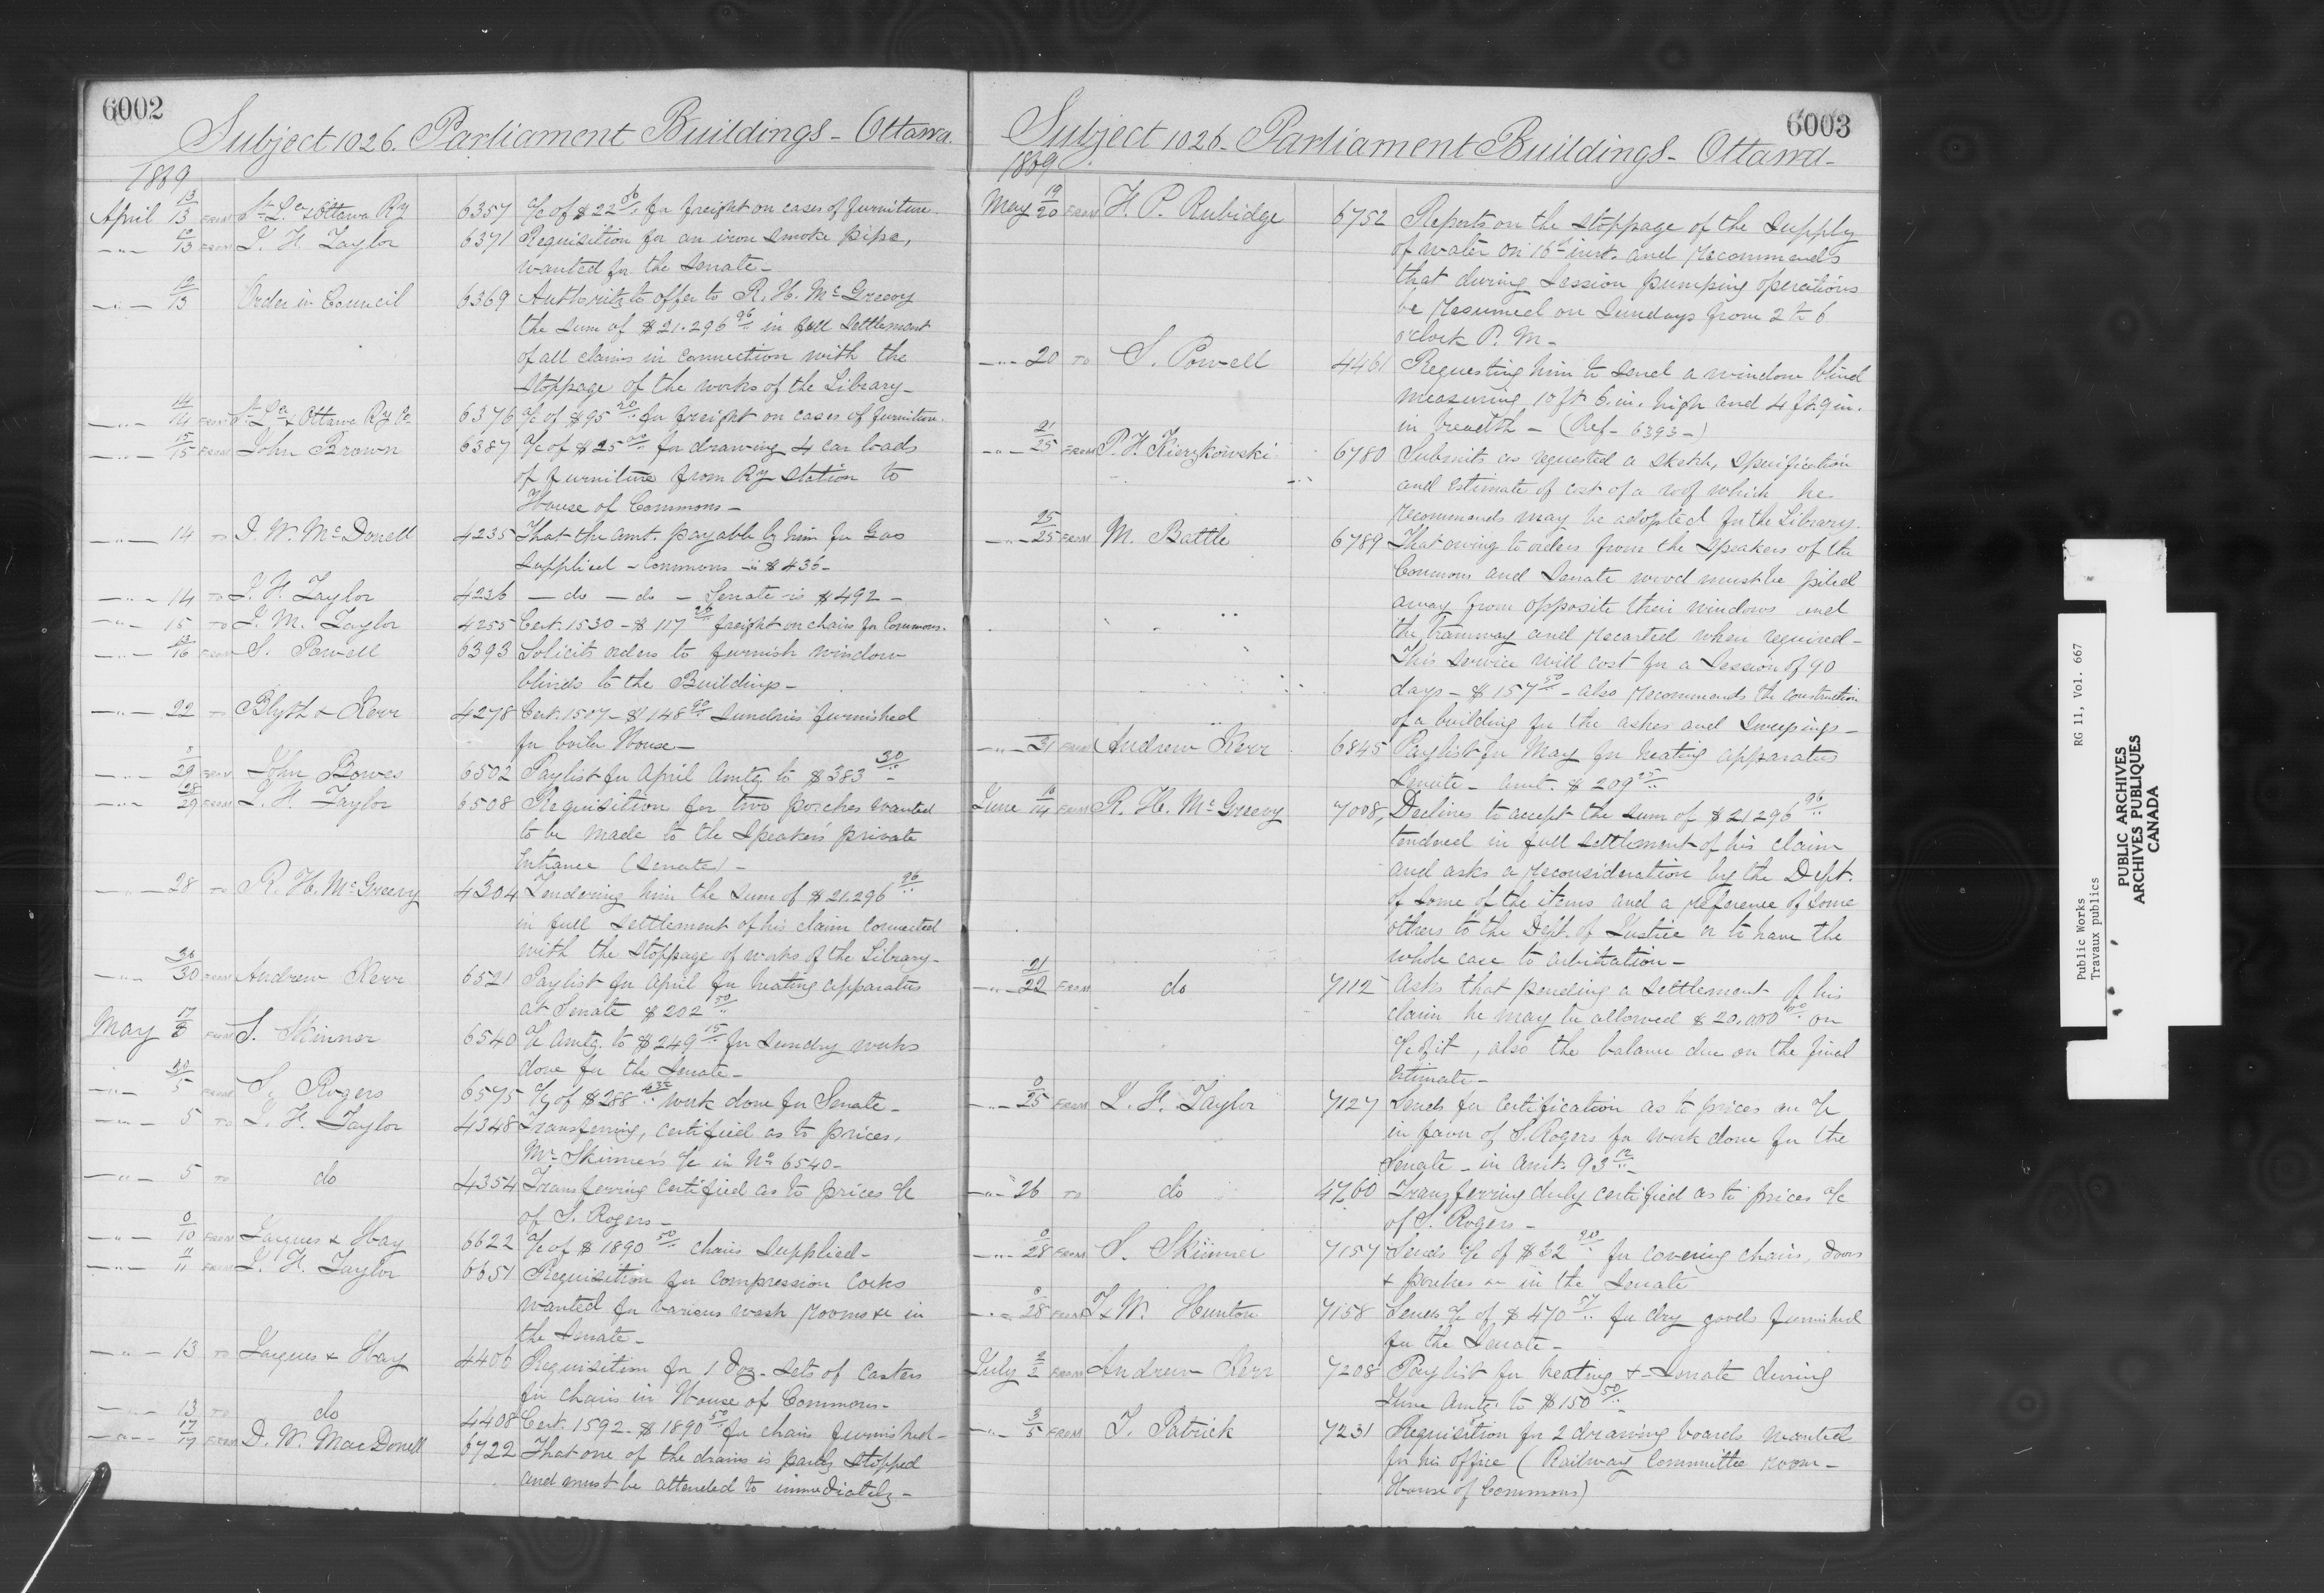 6002
Subject 1026. Parliament Buildings - Ottawa.
1869
April 13/13 FROM St. L. & Ottawa Ry 6357 a/c of $22 56/.. for freight on cases of furniture.
— " — 12/13 FROM J. H. Taylor 6371 Requisition for an iron smoke pipe,
wanted for the Senate -
— " — 12/13 Order in Council 6369 Authority to offer to R. H. McGreevy
the sum of $21.296 96/.. in full settlement
of all claims in connection with the
stoppage of the works of the Library -
— " — 14/14 FROM St. L. & Ottawa Ry Co 6376 a/c of $95 20/.. for freight on cases of furniture.
— " — 15/15 FROM John Brown 6387 a/c of $25 00/.. for drawing 4 car loads
of furniture from Ry Station to
House of Commons -
— " — 14 TO D. W. McDonell 4235 That the amt. payable by him for Gas
supplied - Commons - is $436 -
— " — 14 TO J. H. Taylor 4236 — do — do — Senate is $492 -
— " — 15 TO J. M. Taylor 4255 Cert. 1530 - $117 26/.. freight on chairs for Commons.
— " — 13/16 FROM S. Powell 6393 Solicits orders to furnish window
blinds to the Buildings -
— " — 22 TO Blyth & Kerr 4278 Cert. 1507 - $148 90/.. sundries furnished
for boiler House -
— " — /29 FROM John Bowes 6502 Paylist for April amtg to $383 30/..
— " — 28/29 FROM J. H. Taylor 6508 Requisition for two porches wanted
to be made to the Speaker's private
Entrance (Senate) -
— " — 28 TO R. H. McGreevy 4304 Tendering him the sum of $21.296 96/..
in full settlement of his claim connected
with the stoppage of works of the Library -
— " — 30/30 FROM Andrew Kerr 6521 Paylist for April for heating apparatus
at Senate $202 50/..
May 17/ FROM S. Skinner 6540 a/c amtg. to $249 15/.. for sundry works
done for the Senate -
— " — 30/5 FROM S. Rogers 6575 a/c of $288 /.. work done for Senate -
— " — 5 TO J. H. Taylor 4348 Transferring, certified as to prices,
Mr. Skinner's a/c in No. 6540 -
— " — 5 TO do 4354 Transferring certified as to prices a/c
of S. Rogers -
— " — 0/10 FROM Jacques & Hay 6622 a/c of $1890 50/.. chairs supplied -
— " — 11/11 FROM J. H. Taylor 6651 Requisition for compression cocks
wanted for various wash rooms &c in
the Senate -
— " — 13 TO Jacques & Hay 4406 Requisition for 1 Doz. sets of castors
for chairs in House of Commons -
— " — 13 TO do 4408 Cert. 1592 - $1890 50/.. for chairs furnished -
— " — 17/17 FROM D. W. MacDonell 6722 That one of the drains is partly stopped
and must be attended to immediately -
6003
Subject 1026 - Parliament Buildings - Ottawa -
1869
May 19/20 FROM H. P. Rubidge 6752 Reports on the stoppage of the supply
of water on 16th inst. and recommends
that during Session pumping operations
be resumed on Sundays from 2 to 6
o'clock P. M -
— " — 20 TO S. Powell 4461 Requesting him to send a window blind
measuring 10 ft. 6. in. high and 4 ft. 9 in.
in breadth - (Ref - 6393 -)
— " — 21/25 FROM P. H. Kierzkowski 6780 Submits as requested a sketch, specification
and estimate of cost of a roof which he
recommends may be adopted for the Library.
— " — 25/25 FROM M. Battle 6789 That owing to orders from the Speakers of the
Commons and Senate wood must be piled
away from opposite their windows and
the tramway and recarted when required -
This service will cost for a Session of 90
days - $157 50/.. - also recommends the construction
of a building for the ashes and sweepings -
— " — 31 FROM Andrew Kerr 6845 Paylist for May for heating apparatus
Senate - amt. $209 25/..
June 10/14 FROM R. H. McGreevy 7008, Declines to accept the sum of $21296 96/..
tendered in full settlement of his claim
and asks a reconsideration by the Dept.
of some of the items and a reference of some
others to the Dept. of Justice or to have the
whole case to arbitration -
— " — 21/22 FROM do 7112 Asks that pending a settlement of his
claim he may be allowed $20,000 00/.. on
a/c of it, also the balance due on the final
estimate -
— " — 0/25 FROM J. H. Taylor 7127 Sends for certification as to prices an a/c
in favor of S. Rogers for work done for the
Senate - in amt. 93 12/..
— " — 26 TO do 4760 Transferring duly certified as to prices a/c
of S. Rogers -
— " — 0/28 FROM S. Skinner 7157 Sends a/c of $32 90/.. for covering chairs, doors
& porches &c in the Senate
— " — 0/28 FROM T & W. Hunton 7158 Sends a/c of $470 57/.. for dry goods furnished
for the Senate -
July 2/2 FROM Andrew Kerr 7208 Paylist for heating &- Senate during
June amtg. to $150 50/..
— " — 3/5 FROM T. Patrick 7231 Requisition for 2 drawing boards wanted
for his office (Railway Committee room -
House of Commons)
Public Works RG 11, Vol. 667
Travaux publics
PUBLIC ARCHIVES
ARCHIVES PUBLIQUES
CANADA